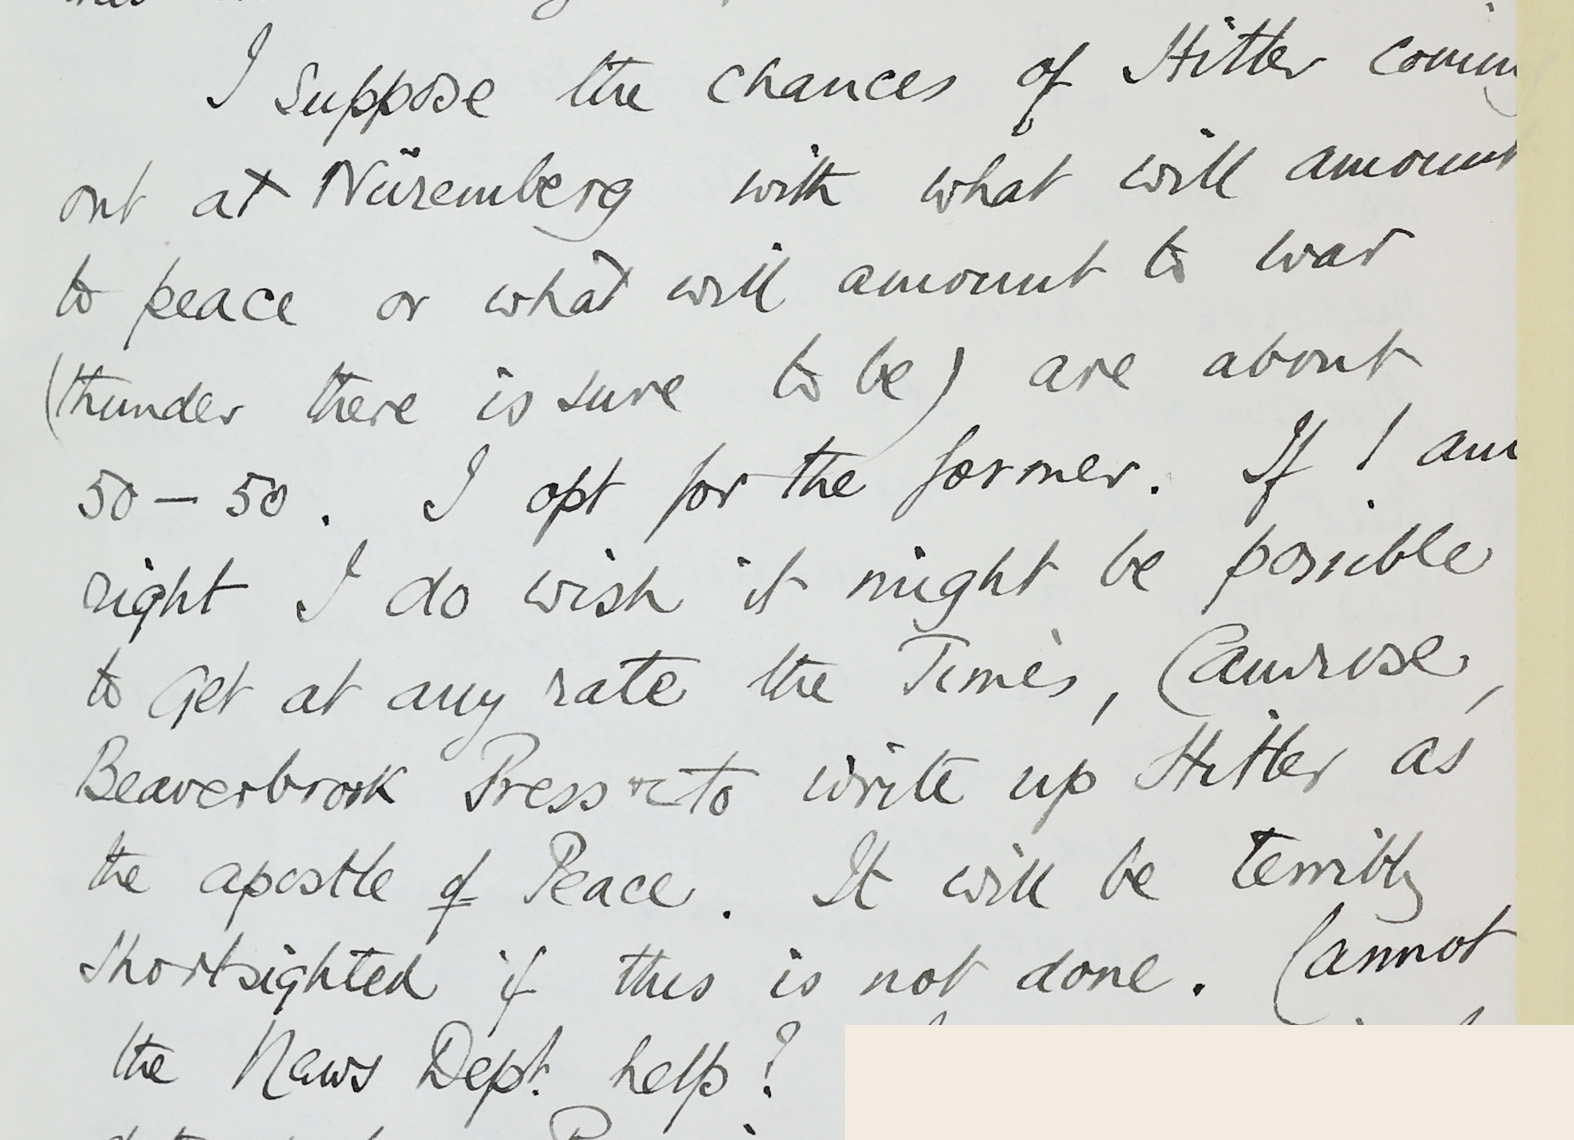 I suppose the chances of Hitler coming
out at Nüremberg with what will amount
to peace or what will amount to war
(thunder there is sure to be) are about
50 – 50. I opt for the former. If I am
right I do wish it might be possible
to get at any rate the Times, Camrose,
Beaverbrook Press to write up Hitler as
the apostle of Peace. It will be terribly
shortsighted if this is not done. Cannot
the News Dept. help?